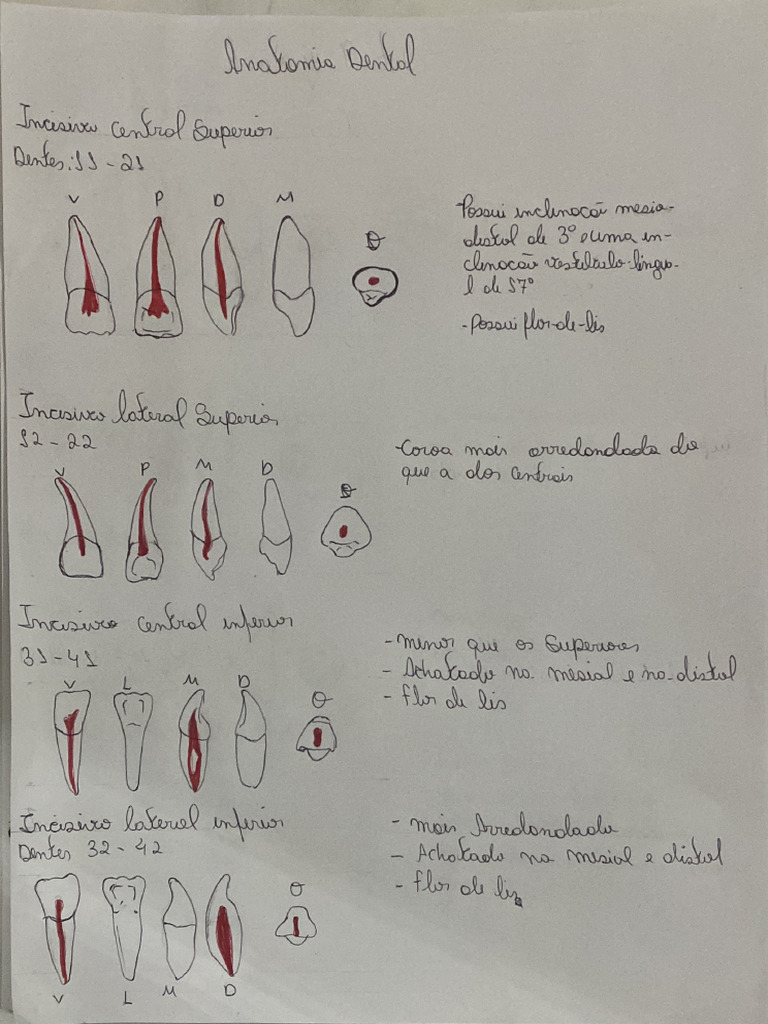 Anatomia Dental
Incisivo Central Superior
Dentes: 11 - 21
V P D M O
Possui inclinação mesio-
distal de 3º e uma in-
clinação vestíbulo-lingua-
l de 17º
- Possui flor-de-lis
Incisivo lateral Superior
12 - 22
V P M D O
- Coroa mais arredondada do
que a dos centrais
Incisivo central inferior
31 - 41
V L M D O
- menor que os Superiores
- Achatado na mesial e na distal
- flor de lis
Incisivo lateral inferior
Dentes 32 - 42
- mais Arredondado
- Achatado na mesial e distal
- flor de lis
O
V L M D